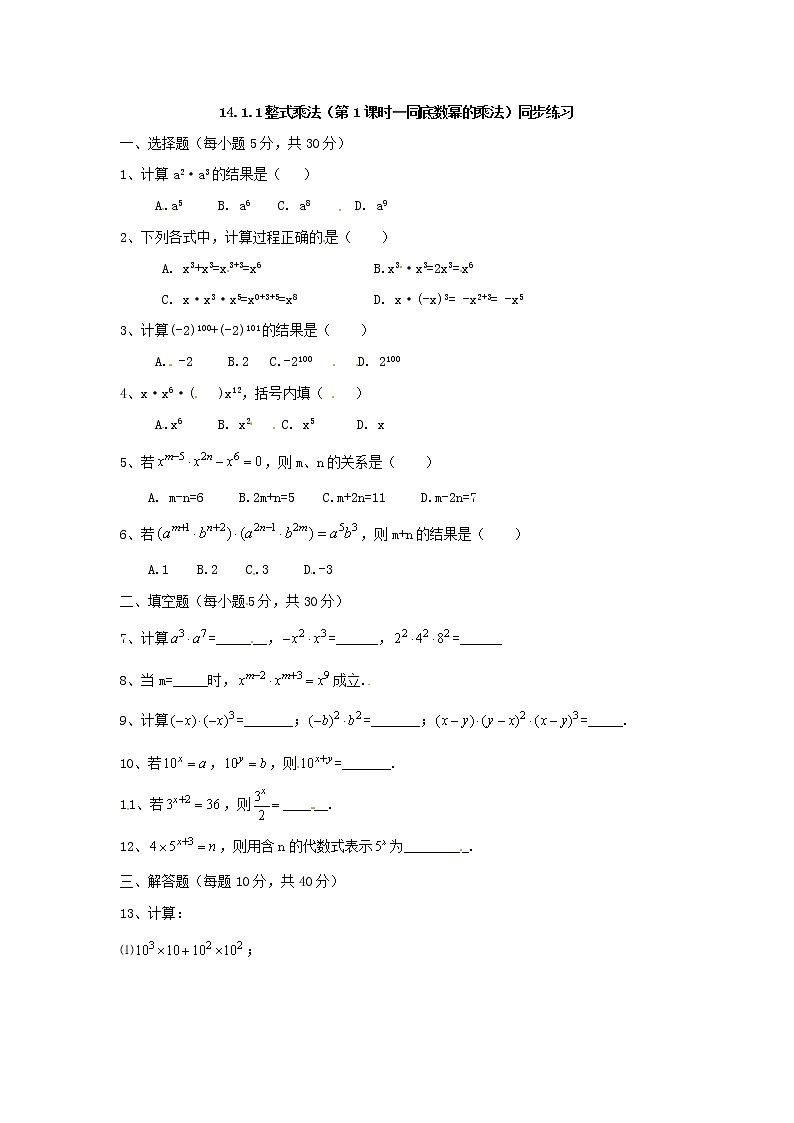 14.1.1整式乘法(第1课时—同底数幂的乘法)同步练习
一、选择题(每小题5分,共30分)
1、计算a²·a³的结果是( )
A.a⁵ B. a⁶ C. a⁸ D. a⁹
2、下列各式中,计算过程正确的是( )
A. x³+x³=x³⁺³=x⁶ B.x³·x³=2x³=x⁶
C. x·x³·x⁵=x⁰⁺³⁺⁵=x⁸ D. x·(-x)³= -x²⁺³= -x⁵
3、计算(-2)¹⁰⁰+(-2)¹⁰¹的结果是( )
A. -2 B.2 C.-2¹⁰⁰ D. 2¹⁰⁰
4、x·x⁶·( )x¹²,括号内填( )
A.x⁶ B. x² C. x⁵ D. x
5、若x^{m-5}·x^{2n}-x⁶=0,则m、n的关系是( )
A. m-n=6 B.2m+n=5 C.m+2n=11 D.m-2n=7
6、若(a^{m+1}·b^{n+2})·(a^{2n-1}·b^{2m})=a⁵b³,则m+n的结果是( )
A.1 B.2 C.3 D.-3
二、填空题(每小题5分,共30分)
7、计算a³·a⁷=_______,-x²·x³=______,2²·4²·8²=______
8、当m=_____时,x^{m-2}·x^{m+3}=x⁹成立.
9、计算(-x)·(-x)³=_______;(-b)²·b²=_______;(x-y)·(y-x)²·(x-y)³=_____.
10、若10^x=a,10^y=b,则10^{x+y}=_______.
11、若3^{x+2}=36,则3^x/2=______.
12、4×5^{x+3}=n,则用含n的代数式表示5^x为_________.
三、解答题(每题10分,共40分)
13、计算:
⑴10³×10+10²×10²;